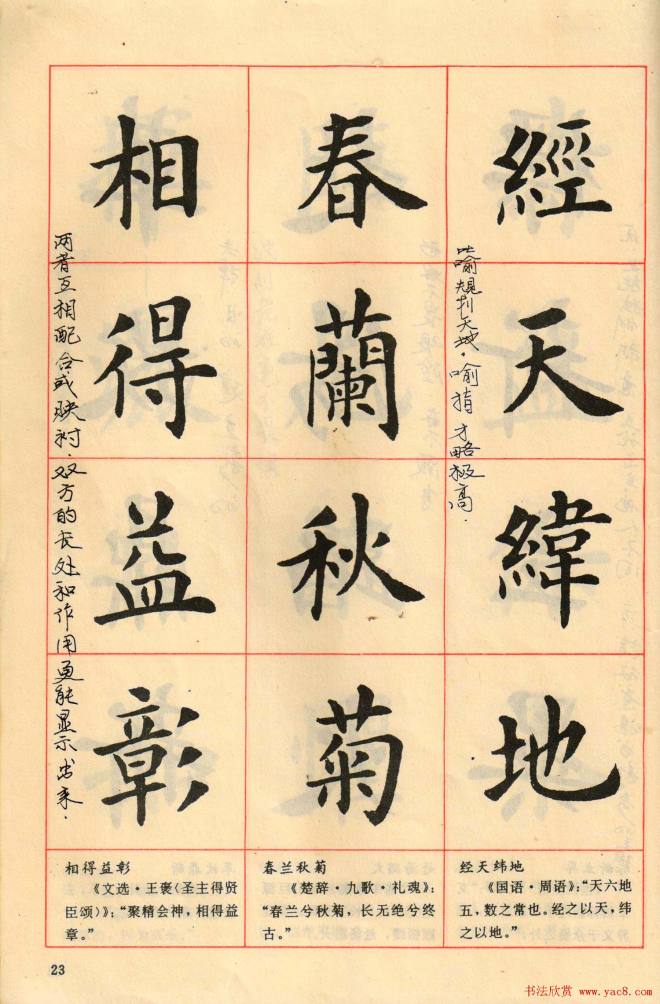 經天緯地
春蘭秋菊
相得益彰
比喻规划天地.喻指才略极高.
两者互相配合或映衬.双方的长处和作用更能显示出来.
经天纬地
《国语·周语》:“天六地
五,数之常也。经之以天,纬
之以地。”
春兰秋菊
《楚辞·九歌·礼魂》:
“春兰兮秋菊,长无绝兮终
古。”
相得益彰
《文选·王褒〈圣主得贤
臣颂〉》:“聚精会神,相得益
章。”
23
书法欣赏 www.yac8.com